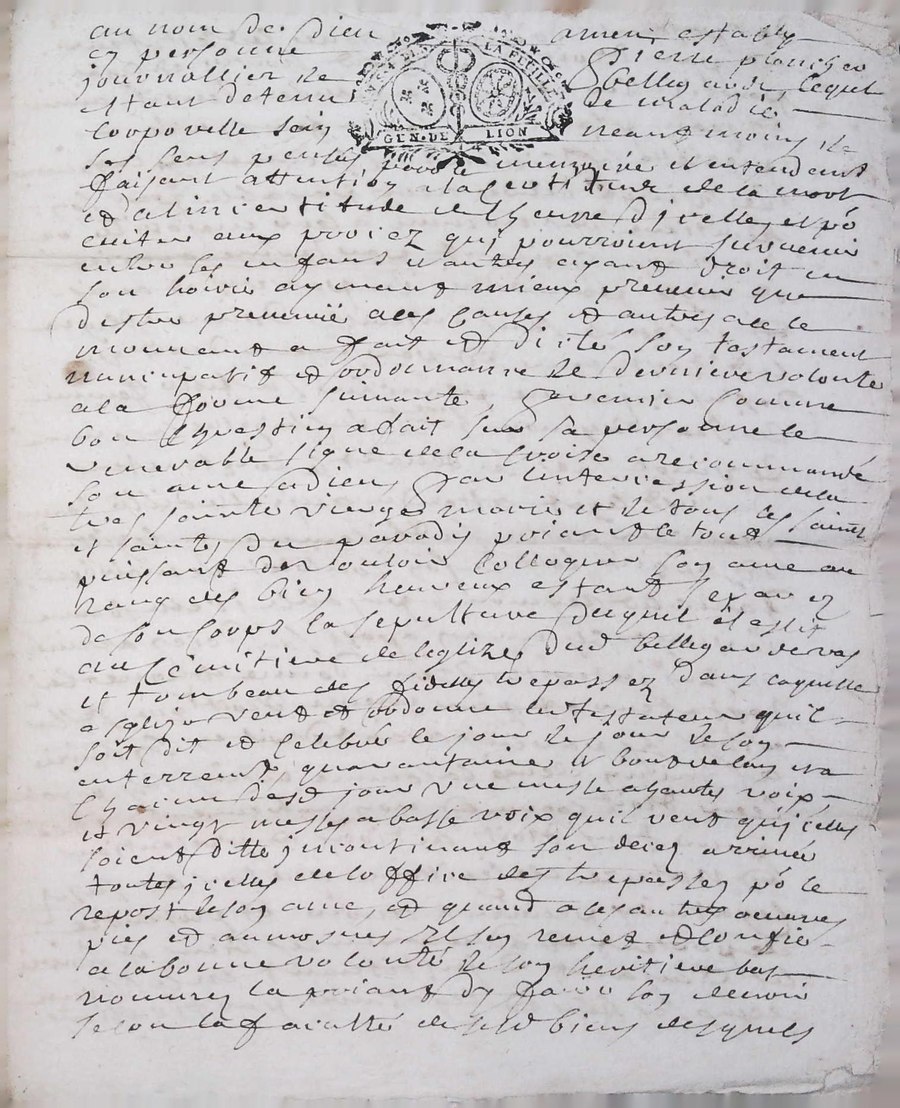 au nom de Dieu amen, estably
en personne Pierre planchet
journallier de bellegarde, lequel
estant detenu de maladie
Corporelle sein neantmoins de
GEN. DE LION
ses sens pensée memoire et entendement
faisant attention a la certitude de la mort
et a lincertitude de lheure dicelle, et po
eviter aux procez qui pourroient survenir
entre les enfans et autres ayant droit en
son hoirie aymant mieux prevenir que
destre prevenu a ces Causes et autres a de le
mouvant a fait et dicté son testament
nuncupatif et ordonnance de derniere volonte
a la forme suivante, premier Comme
bon Chrestien a fait sur sa personne le
venerable signe de la Croix a recommandé
son ame a dieu, par lintercession de la
tres sainte vierge marie et de tous les saints
et saintes du paradis priant le tout
puissant de vouloir Colloquer son ame au
rang des bien heureux estant separez
de son Corps la sepulture duquel il eslit
au Cemitiere de leglize dud bellegarde
et tombeau des fidelles trepassez dans laquelle
esglize veut et ordonne le testateur quil
soit dit et Celebré le jour le jour de son
enterrent, quarantaine et bout de lan et a
Chacun desd jour une messe a hautes voix
et vingt messes a basse voix quil veut quicelles
soient ditte incontinant son decez arrivée
toutes icelles de loffice des trepassez po le
repos de son ame, et quand a les autres oeuvres
pies et aumosnes Il sen remet et Confie
a la bonne volonté de son heritiere bas
nommez la priant dy faire son devoir
selon la faculté de sesd biens desquels